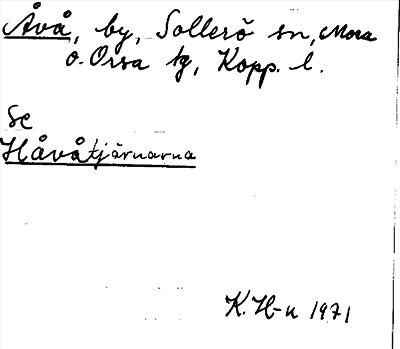 Åvå, by, Sollerö sn, Mora
o. Orsa tg, Kopp. l.
Se
Håvåtjärnarna
K. H-n 1971